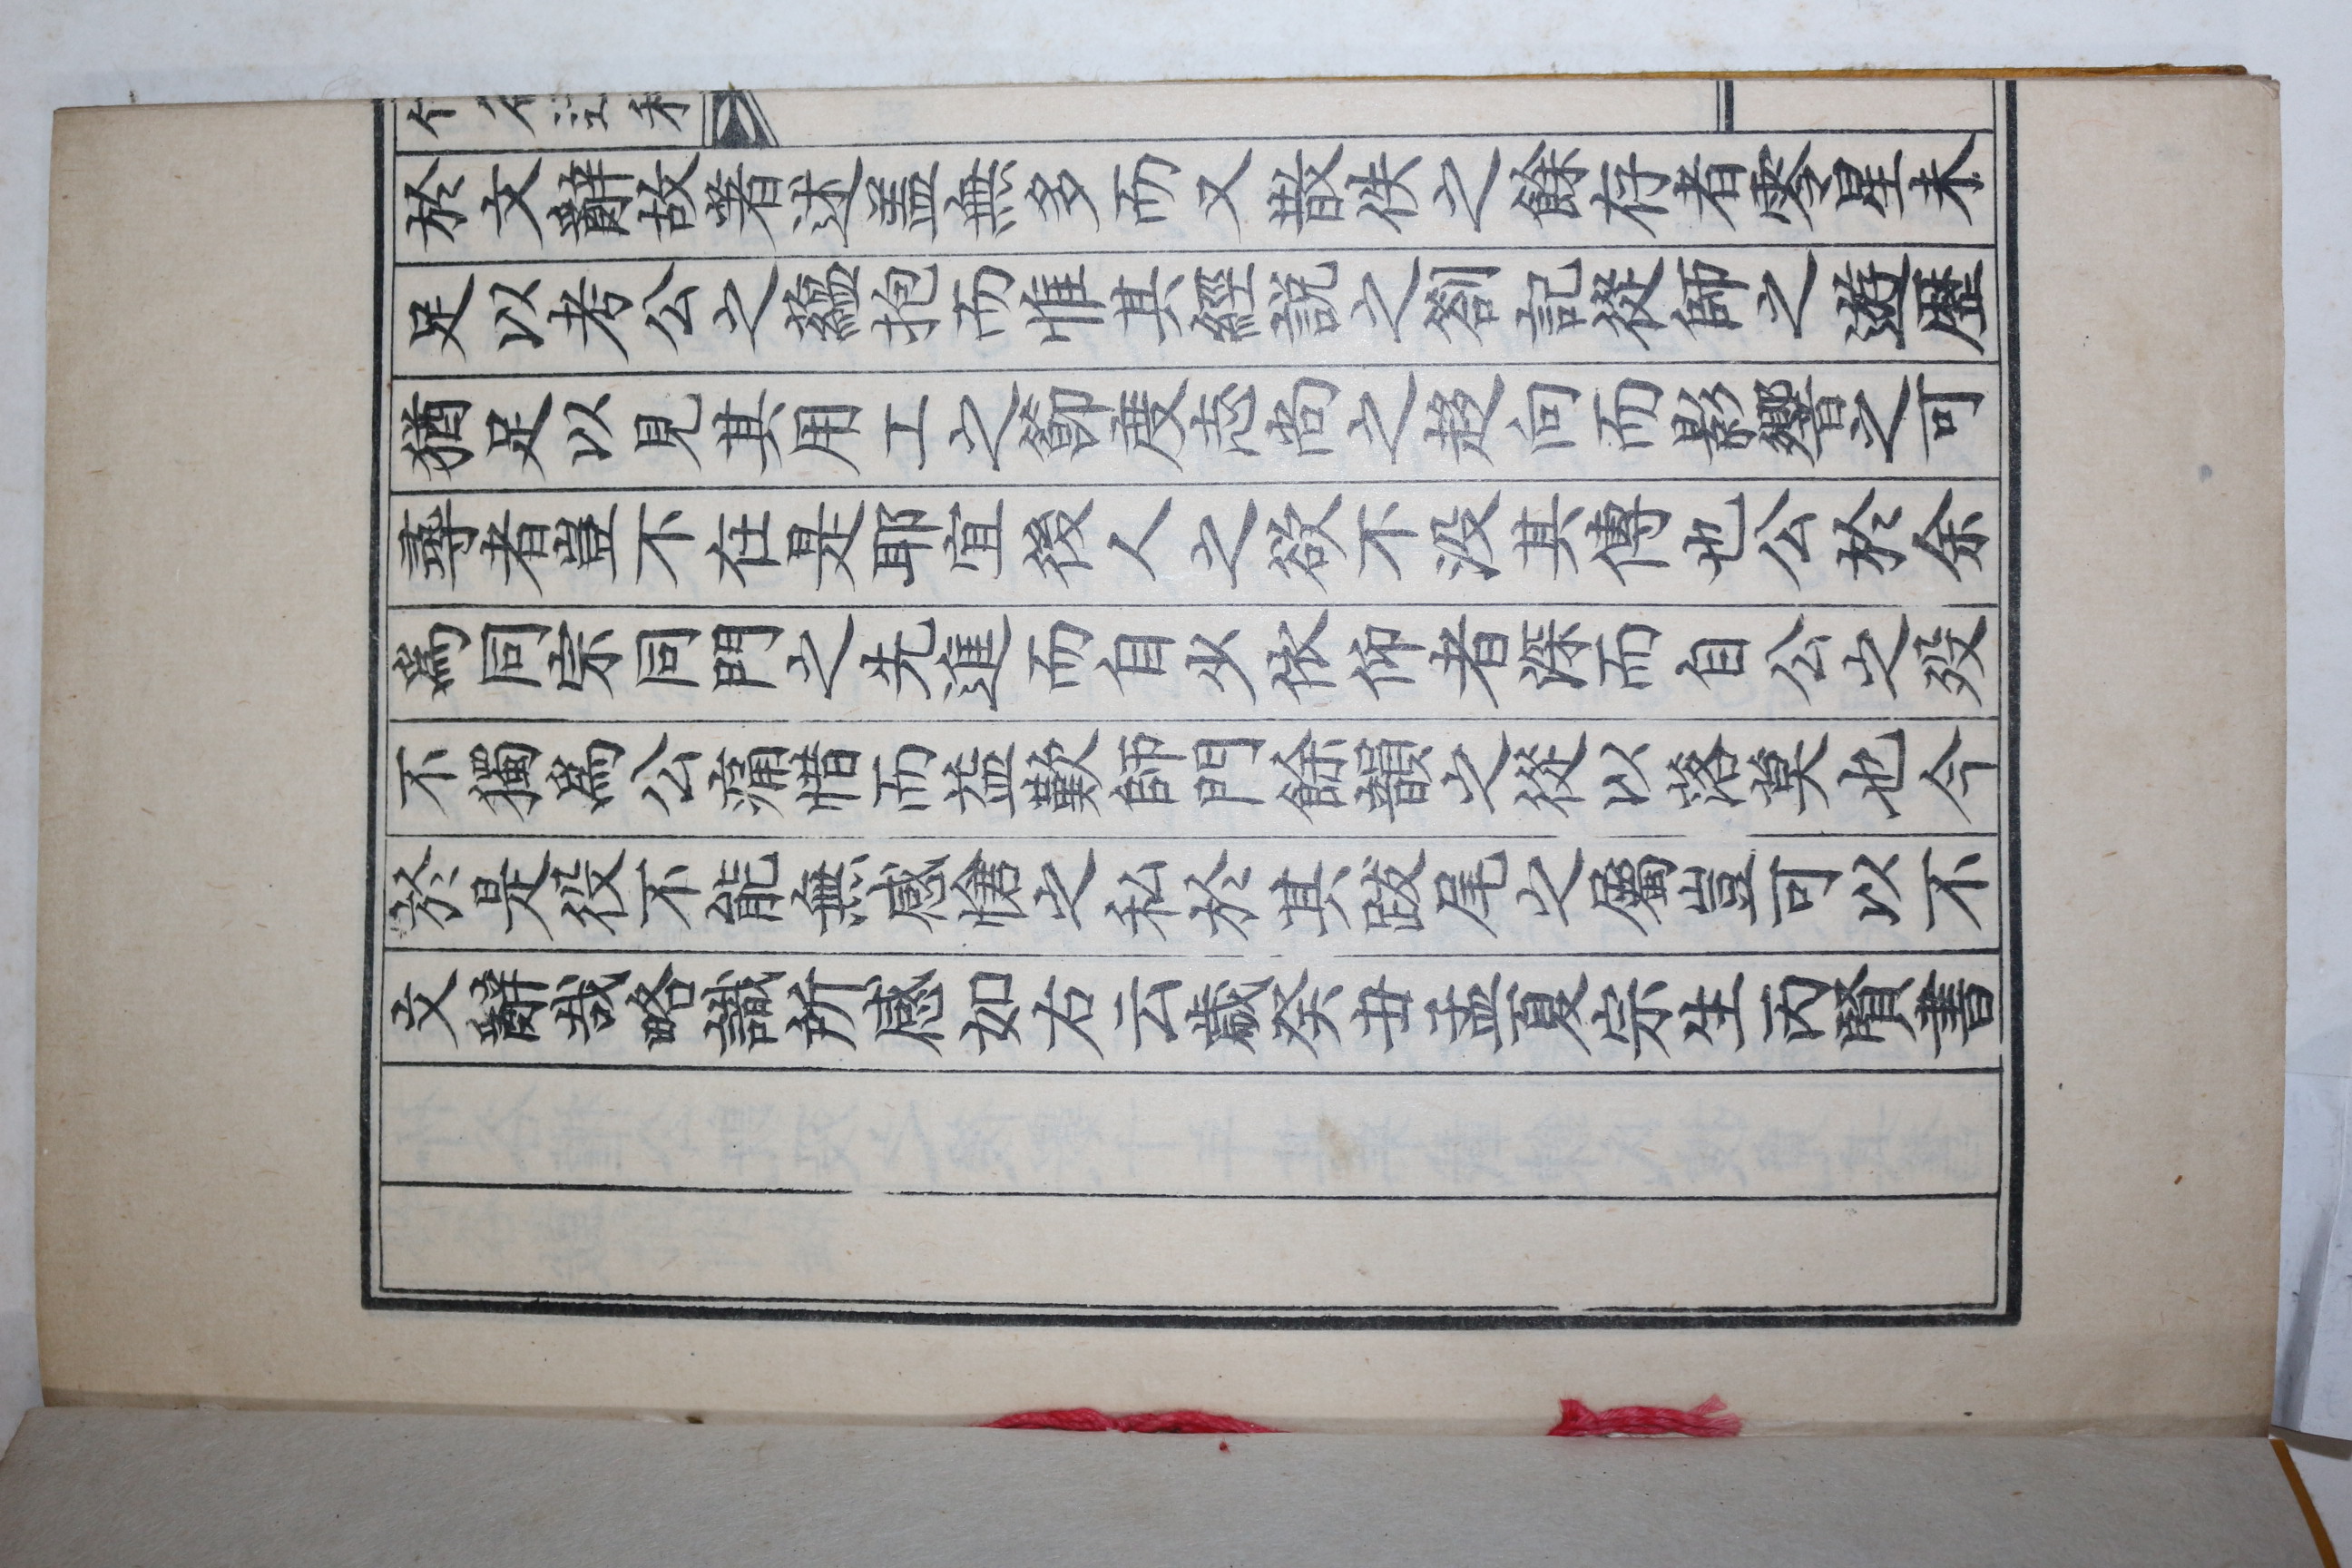 於文辭故著述盖無多而又散佚之餘存者零星未
足以考公之蘊抱而惟其經說之劄記從師之遊歷
猶足以見其用工之節度志尚之趍向而影響之可
尋者豈不在是耶宜後人之欲不沒其傳也公於余
爲同宗同門之先進而自少依仰者深而自公之歿
不獨爲公痛惜而益歎師門餘韻之從以落莫也今
於是役不能無感愴之私於其跋尾之屬豈可以不
文辭哉略識所感如右云歲癸丑孟夏宗生丙書